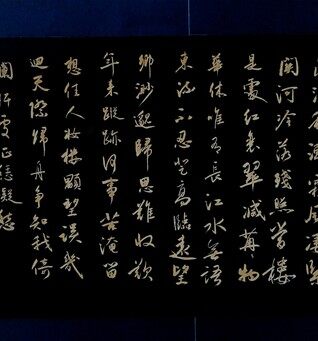 関河冷落殘照當樓
是處紅衰翠減苒苒物
華休唯有長江水無語
東流不忍登高臨遠望
鄉渺邈歸思難收歎
年來蹤跡何事苦淹留
想佳人妝樓顒望誤幾
迴天際歸舟爭知我倚
闌杆處正恁凝愁